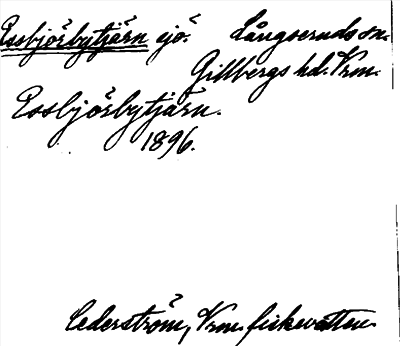 Possbjörbytjärn sjö. Långseruds sn.
Gillbergs hd. Vrm.
Possbjörbytjärn.
1896.
Cederström, Vrm. fiskevatten.